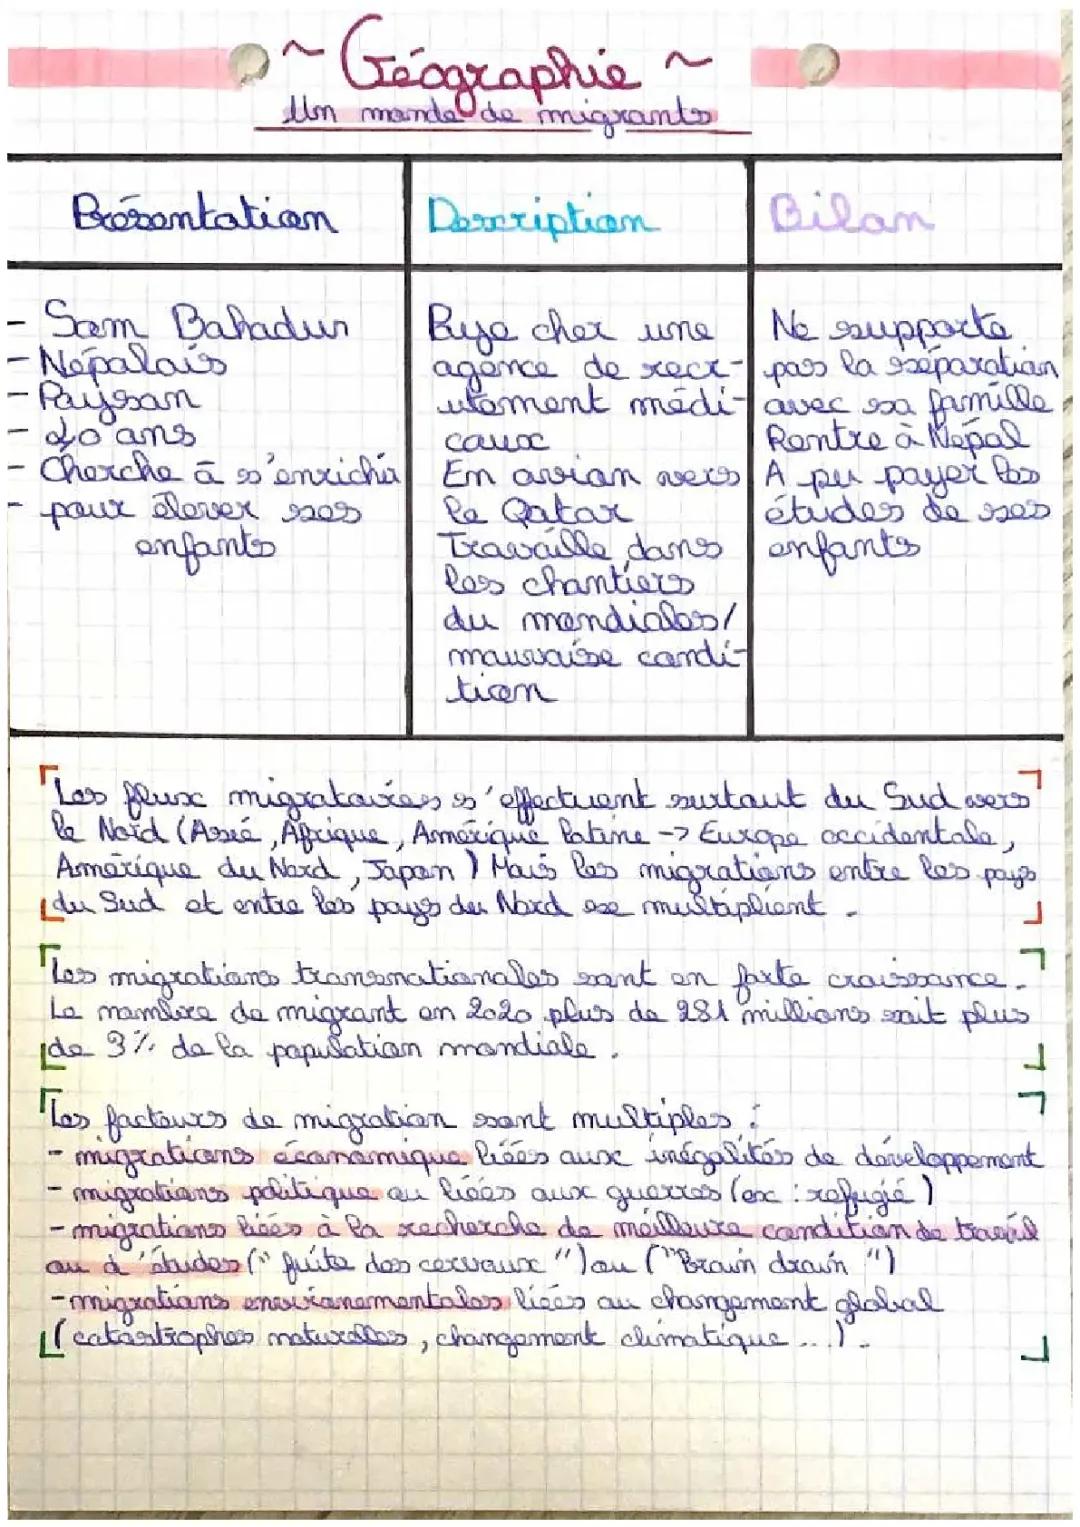 ~ Géographie ~
Un monde de migrants
Présentation
Description
Bilan
- Sam Bahadur
- Népalais
- Paysan
- 40 ans
- Cherche à s'enrichir
- pour élever ses
enfants
Paye cher une
agence de recr-
utement médi-
caux
En avion vers
le Qatar
Travaille dans
les chantiers
du mondiales/
mauvaise condi-
tion
Ne supporte
pas la séparation
avec sa famille
Rentre à Népal
A pu payer les
études de ses
enfants
Les flux migratoires s'effectuent surtout du Sud vers
le Nord (Asie, Afrique, Amérique latine -> Europe occidentale,
Amérique du Nord, Japon) Mais les migrations entre les pays
du Sud et entre les pays du Nord se multiplient.
Les migrations transnationales sont en forte croissance.
Le nombre de migrant en 2020 plus de 281 millions soit plus
de 3% de la population mondiale.
Les facteurs de migration sont multiples :
- migrations économique liées aux inégalités de développement
- migrations politique ou liées aux guerres (ex : refugié)
- migrations liées à la recherche de meilleure condition de travail
ou d'études (" fuite des cerveaux ") ou ("Brain drain ")
- migrations environementales liées au changement global
(catastrophes naturelles, changement climatique ...).